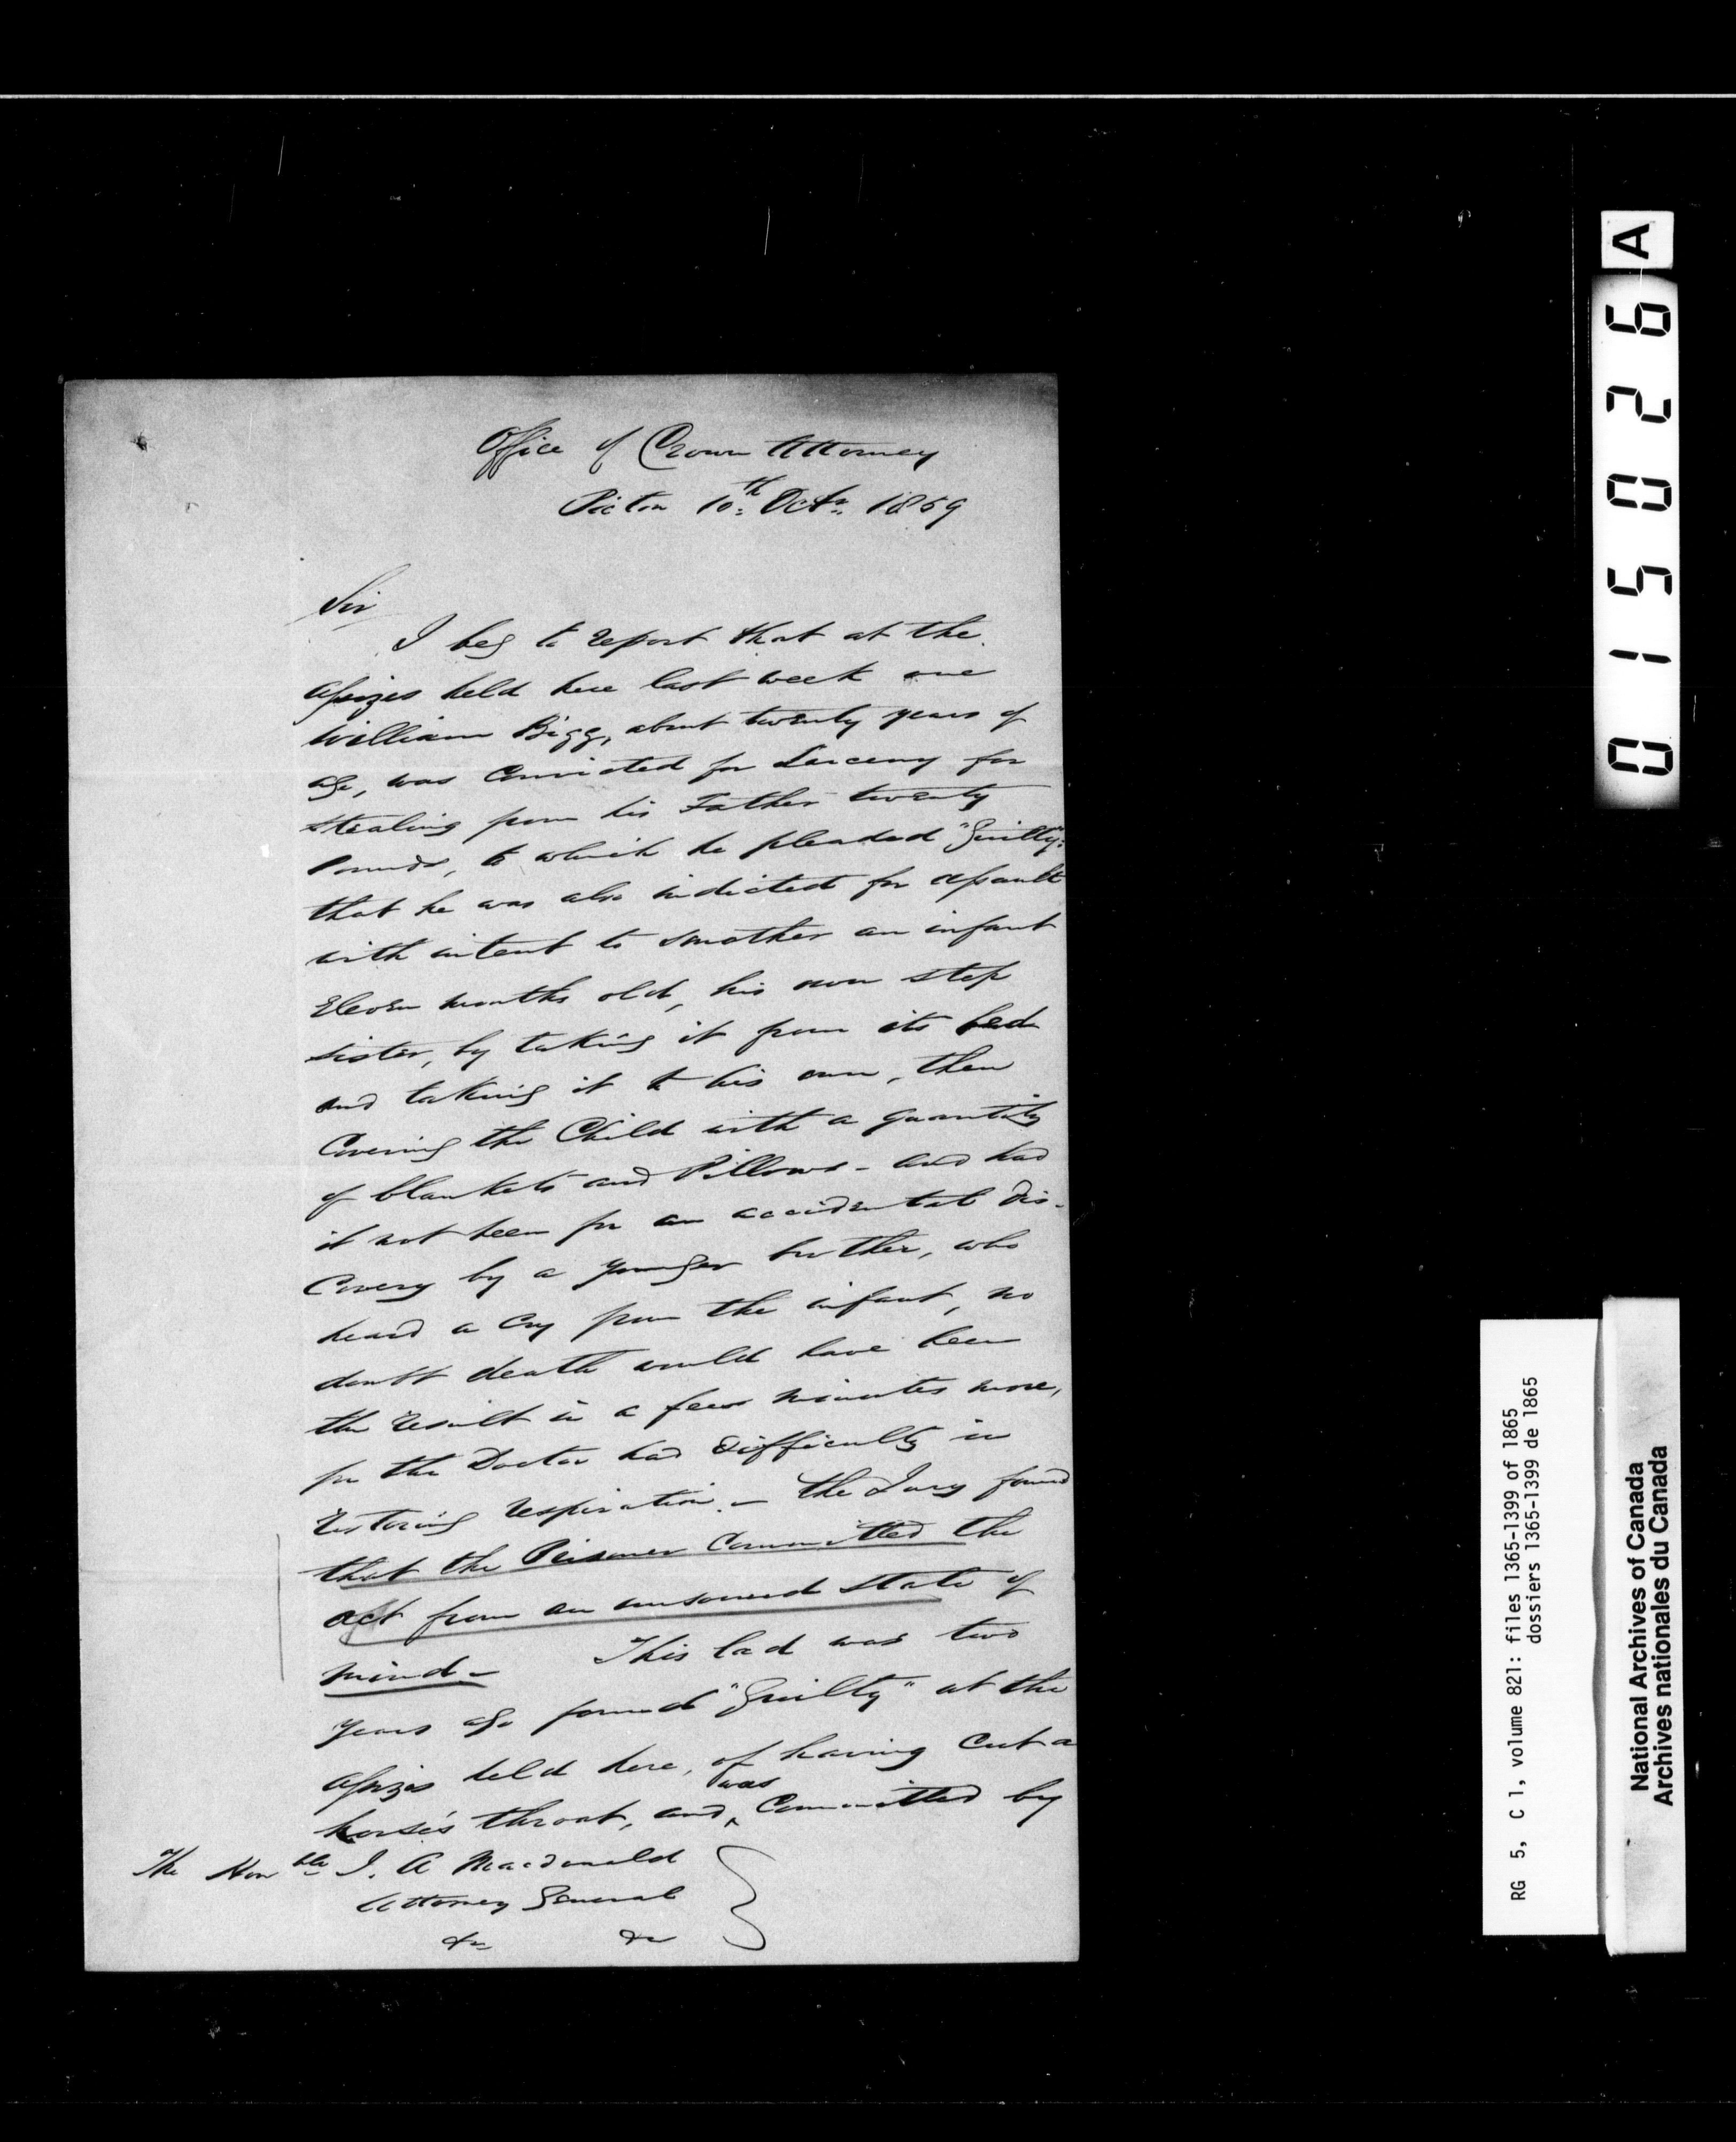 Office of Crown Attorney
Picton 10th Octr. 1859
Sir
I beg to report that at the
Assizes held here last week one
William Bigg, about twenty years of
age, was Convicted for Larceny for
stealing from his Father twenty
Pounds, to which he pleaded "Guilty":
that he was also indicted for assault
with intent to smother an infant
Eleven months old, his own step
sister, by taking it from its bed
and taking it to his own, then
Covering the Child with a quantity
of blankets and Pillows - and had
it not been for an accidental dis-
covery by a younger brother, who
heard a cry from the infant, no
doubt death would have been
the result in a few minutes more,
for the Doctor had difficulty in
restoring respiration. - The Jury found
that the Prisoner Committed the
act from an unsound state of
mind - This lad was two
years ago found "Guilty" at the
Assizes held here, of having Cut a
horse's throat, and was Committed by
The Honble J. A Macdonald
Attorney General
&c &c
A
015026
RG 5, C 1, volume 821: files 1365-1399 of 1865
dossiers 1365-1399 de 1865
National Archives of Canada
Archives nationales du Canada